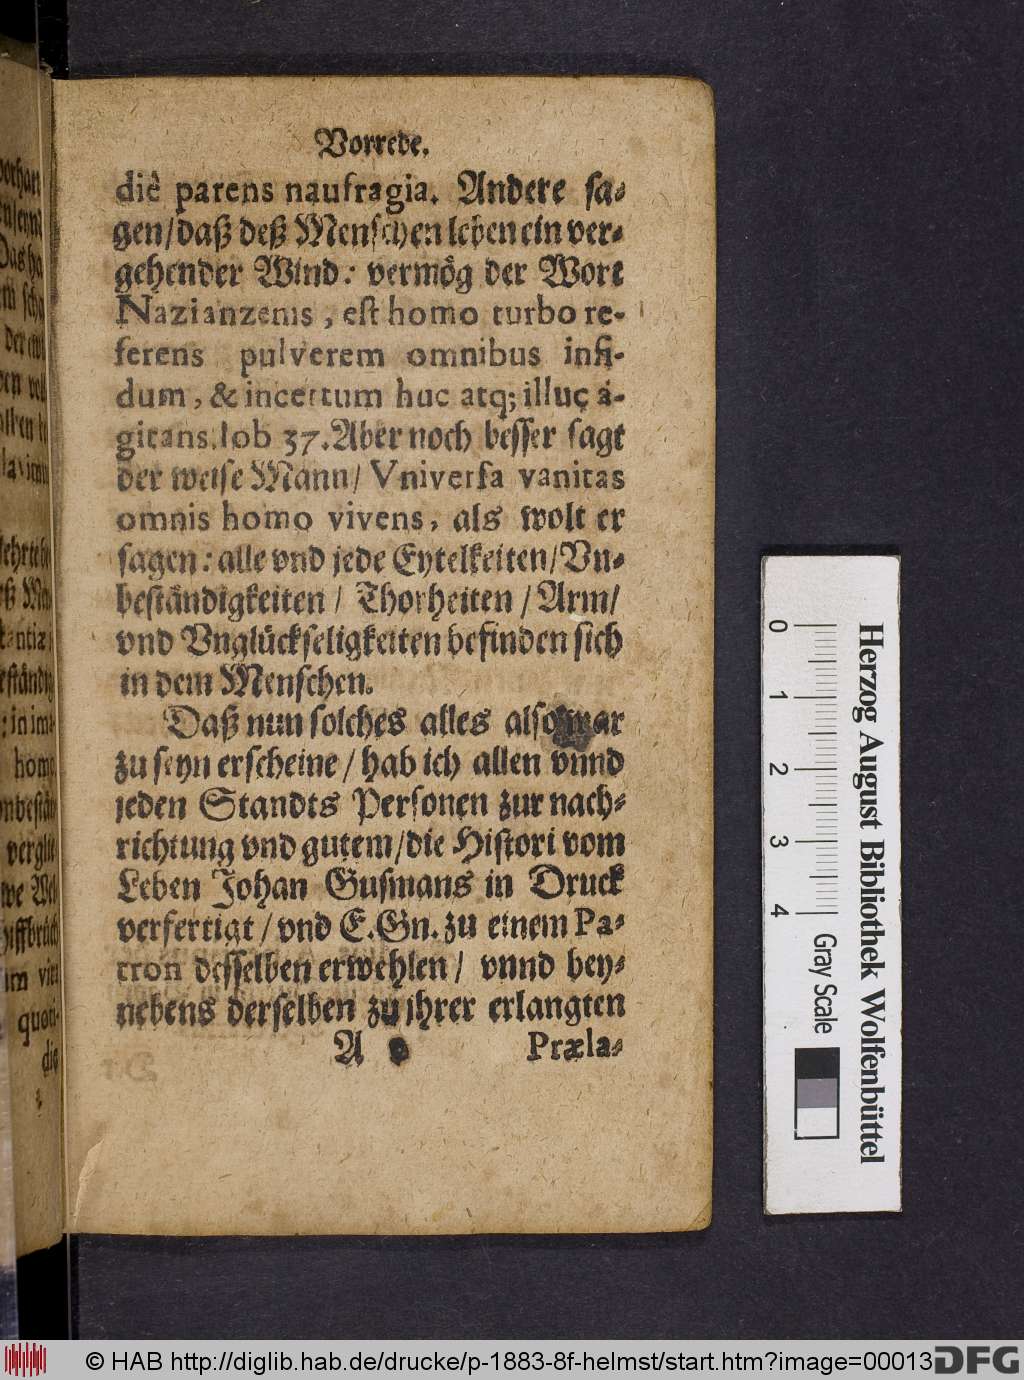 Vorrede.
diè parens naufragia. Andere sa-
gen/daß deß Menschen leben ein ver-
gehender Wind: vermög der Wort
Nazianzenis, est homo turbo re-
ferens pulverem omnibus infi-
dum, & incertum huc atq; illuc á-
gitans. Iob 37. Aber noch besser sagt
der weise Mann/ Vniversa vanitas
omnis homo vivens, als wolt er
sagen: alle vnd jede Eytelkeiten/Vn-
beständigkeiten / Thorheiten / Arm/
vnd Vnglückseligkeiten befinden sich
in dem Menschen.
Daß nun solches alles also war
zu seyn erscheine / hab ich allen vnnd
jeden Standts Personen zur nach-
richtung vnd gutem/die Histori vom
Leben Johan Gusmans in Druck
verfertigt / vnd E. Gn. zu einem Pa-
tron desselben erwehlen / vnnd bey-
nebens derselben zu ihrer erlangten
A
Præla-
quoti-
die
0 1 2 3 4
Gray Scale
Herzog August Bibliothek Wolfenbüttel
© HAB http://diglib.hab.de/drucke/p-1883-8f-helmst/start.htm?image=00013
DFG